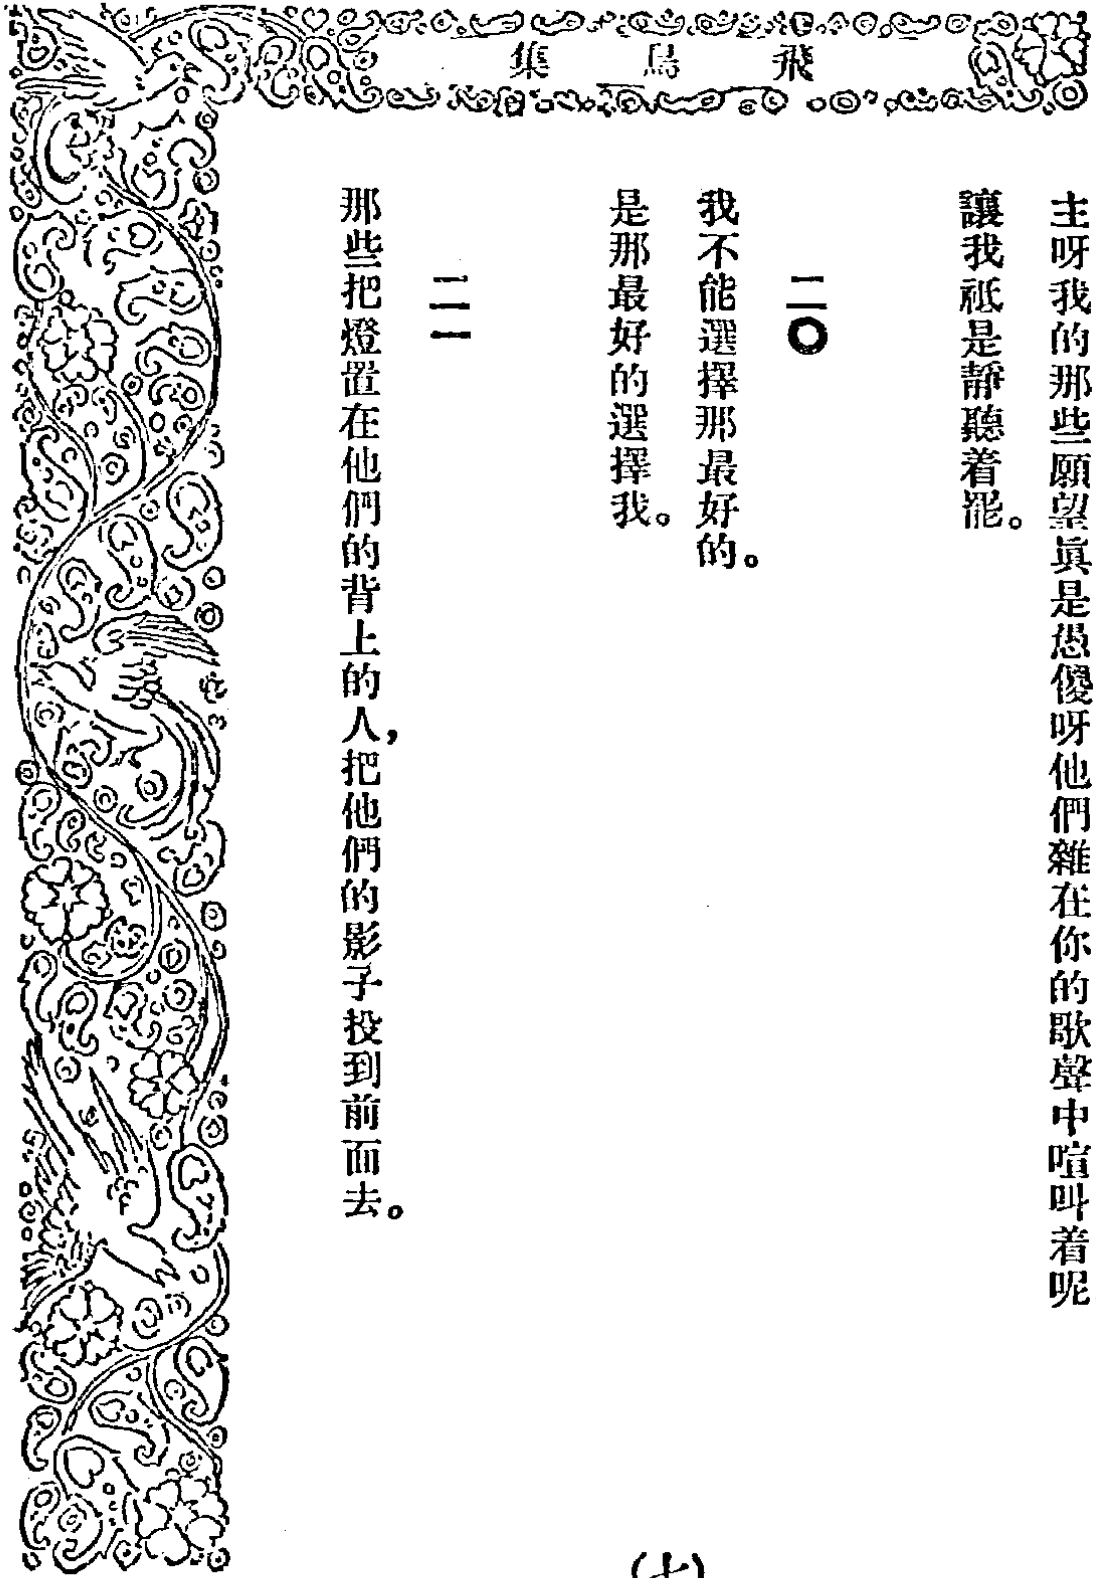 飛鳥集
主呀我的那些願望眞是愚傻呀他們雜在你的歌聲中喧叫着呢
讓我祇是靜聽着罷。
二〇
我不能選擇那最好的。
是那最好的選擇我。
二一
那些把燈置在他們的背上的人，把他們的影子投到前面去。
(七)